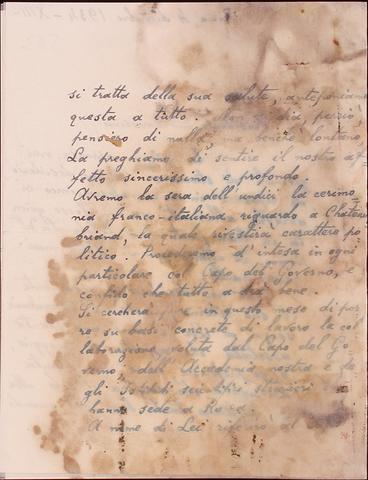 si tratta della sua salute, anteponiamo
questa a tutto. Non si dia perciò
pensiero di nulla, ma benchè lontano,
La preghiamo di sentire il nostro af-
fetto sincerissimo e profondo.
Avremo la sera dell'undici la cerimo-
nia franco-italiana riguardo a Chateau
briand, la quale rivestirà carattere po
litico. Procederemo d'intesa in ogni
particolare col Capo del Governo, e
confido che tutto andrà bene.
Si cercherà in questo mese di por
re su basi concrete di lavoro la col
laborazione voluta dal Capo del Go
verno, dell'Accademia nostra e de
gli Istituti scientifici stranieri
hanno sede a Roma.
A nome di Lei